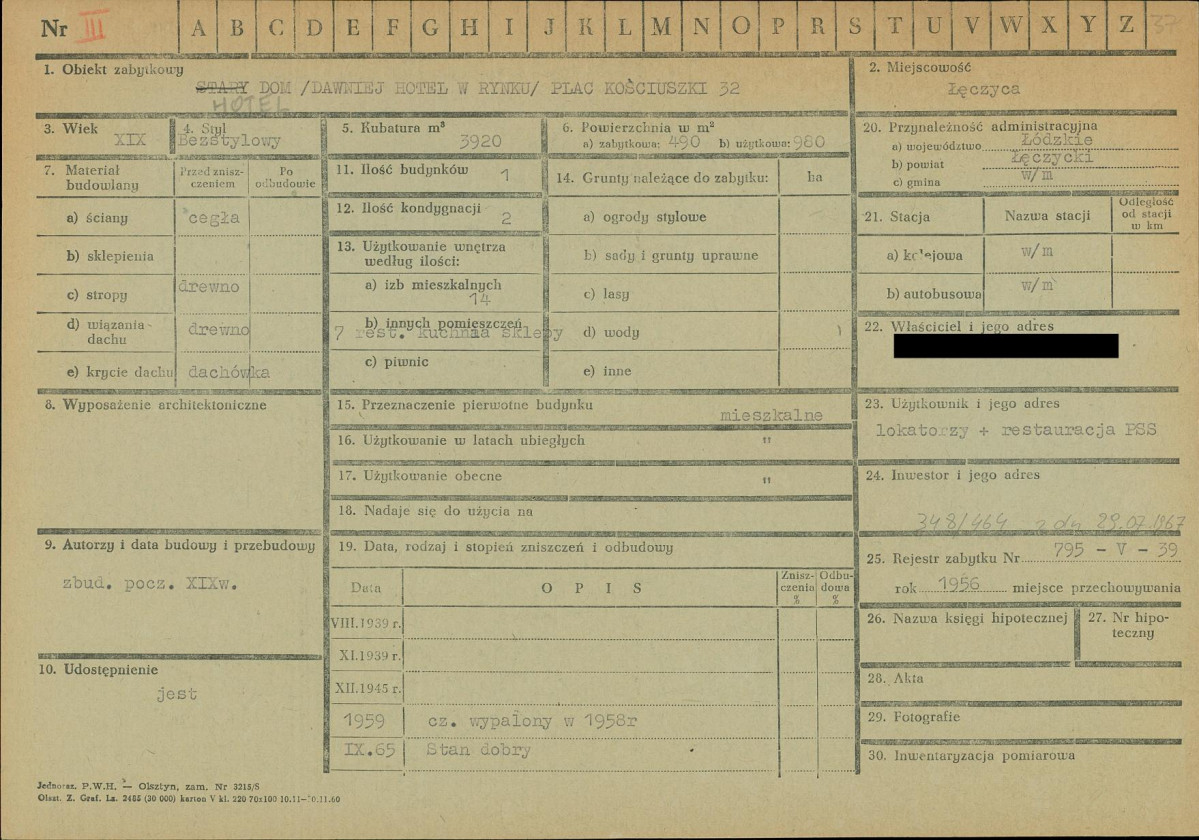 Nr III A B C D E F G H I J K L M N O P R S T U V W X Y Z 37
1. Obiekt zabytkowy
STARY DOM /DAWNIEJ HOTEL W RYNKU/ PLAC KOŚCIUSZKI 32
HOTEL
2. Miejscowość
Łęczyca
3. Wiek
XIX
4. Styl
Bezstylowy
5. Kubatura m³
3920
6. Powierzchnia w m²
a) zabytkowa: 490 b) użytkowa: 980
20. Przynależność administracyjna
a) województwo Łódzkie
b) powiat Łęczycki
c) gmina w/m
7. Materiał budowlany
Przed zniszczeniem
Po odbudowie
a) ściany cegła
b) sklepienia
c) stropy drewno
d) wiązania dachu drewno
e) krycie dachu dachówka
11. Ilość budynków 1
12. Ilość kondygnacji 2
13. Użytkowanie wnętrza
według ilości:
a) izb mieszkalnych
14
b) innych pomieszczeń
7 rest. kuchnia sklepy
c) piwnic
14. Grunty należące do zabytku: ha
a) ogrody stylowe
b) sady i grunty uprawne
c) lasy
d) wody
e) inne
21. Stacja Nazwa stacji Odległość od stacji w km
a) kolejowa w/m
b) autobusowa w/m
22. Właściciel i jego adres
8. Wyposażenie architektoniczne
15. Przeznaczenie pierwotne budynku mieszkalne
16. Użytkowanie w latach ubiegłych "
17. Użytkowanie obecne "
18. Nadaje się do użycia na
23. Użytkownik i jego adres
lokatorzy + restauracja PSS
24. Inwestor i jego adres
348/464 z dn 29.07.1967
9. Autorzy i data budowy i przebudowy
zbud. pocz. XIXw.
10. Udostępnienie
jest
19. Data, rodzaj i stopień zniszczeń i odbudowy
Data O P I S Zniszczenia % Odbudowa %
VIII.1939 r.
XI.1939 r.
XII.1945 r.
1959 cz. wypalony w 1958r
IX.65 Stan dobry
25. Rejestr zabytku Nr 795 - V - 39
rok 1956 miejsce przechowywania
26. Nazwa księgi hipotecznej
27. Nr hipoteczny
28. Akta
29. Fotografie
30. Inwentaryzacja pomiarowa
Jednoraz. P.W.H. — Olsztyn, zam. Nr 3215/S
Olszt. Z. Graf. Lz. 2455 (30 000) karton V kl. 220 70x100